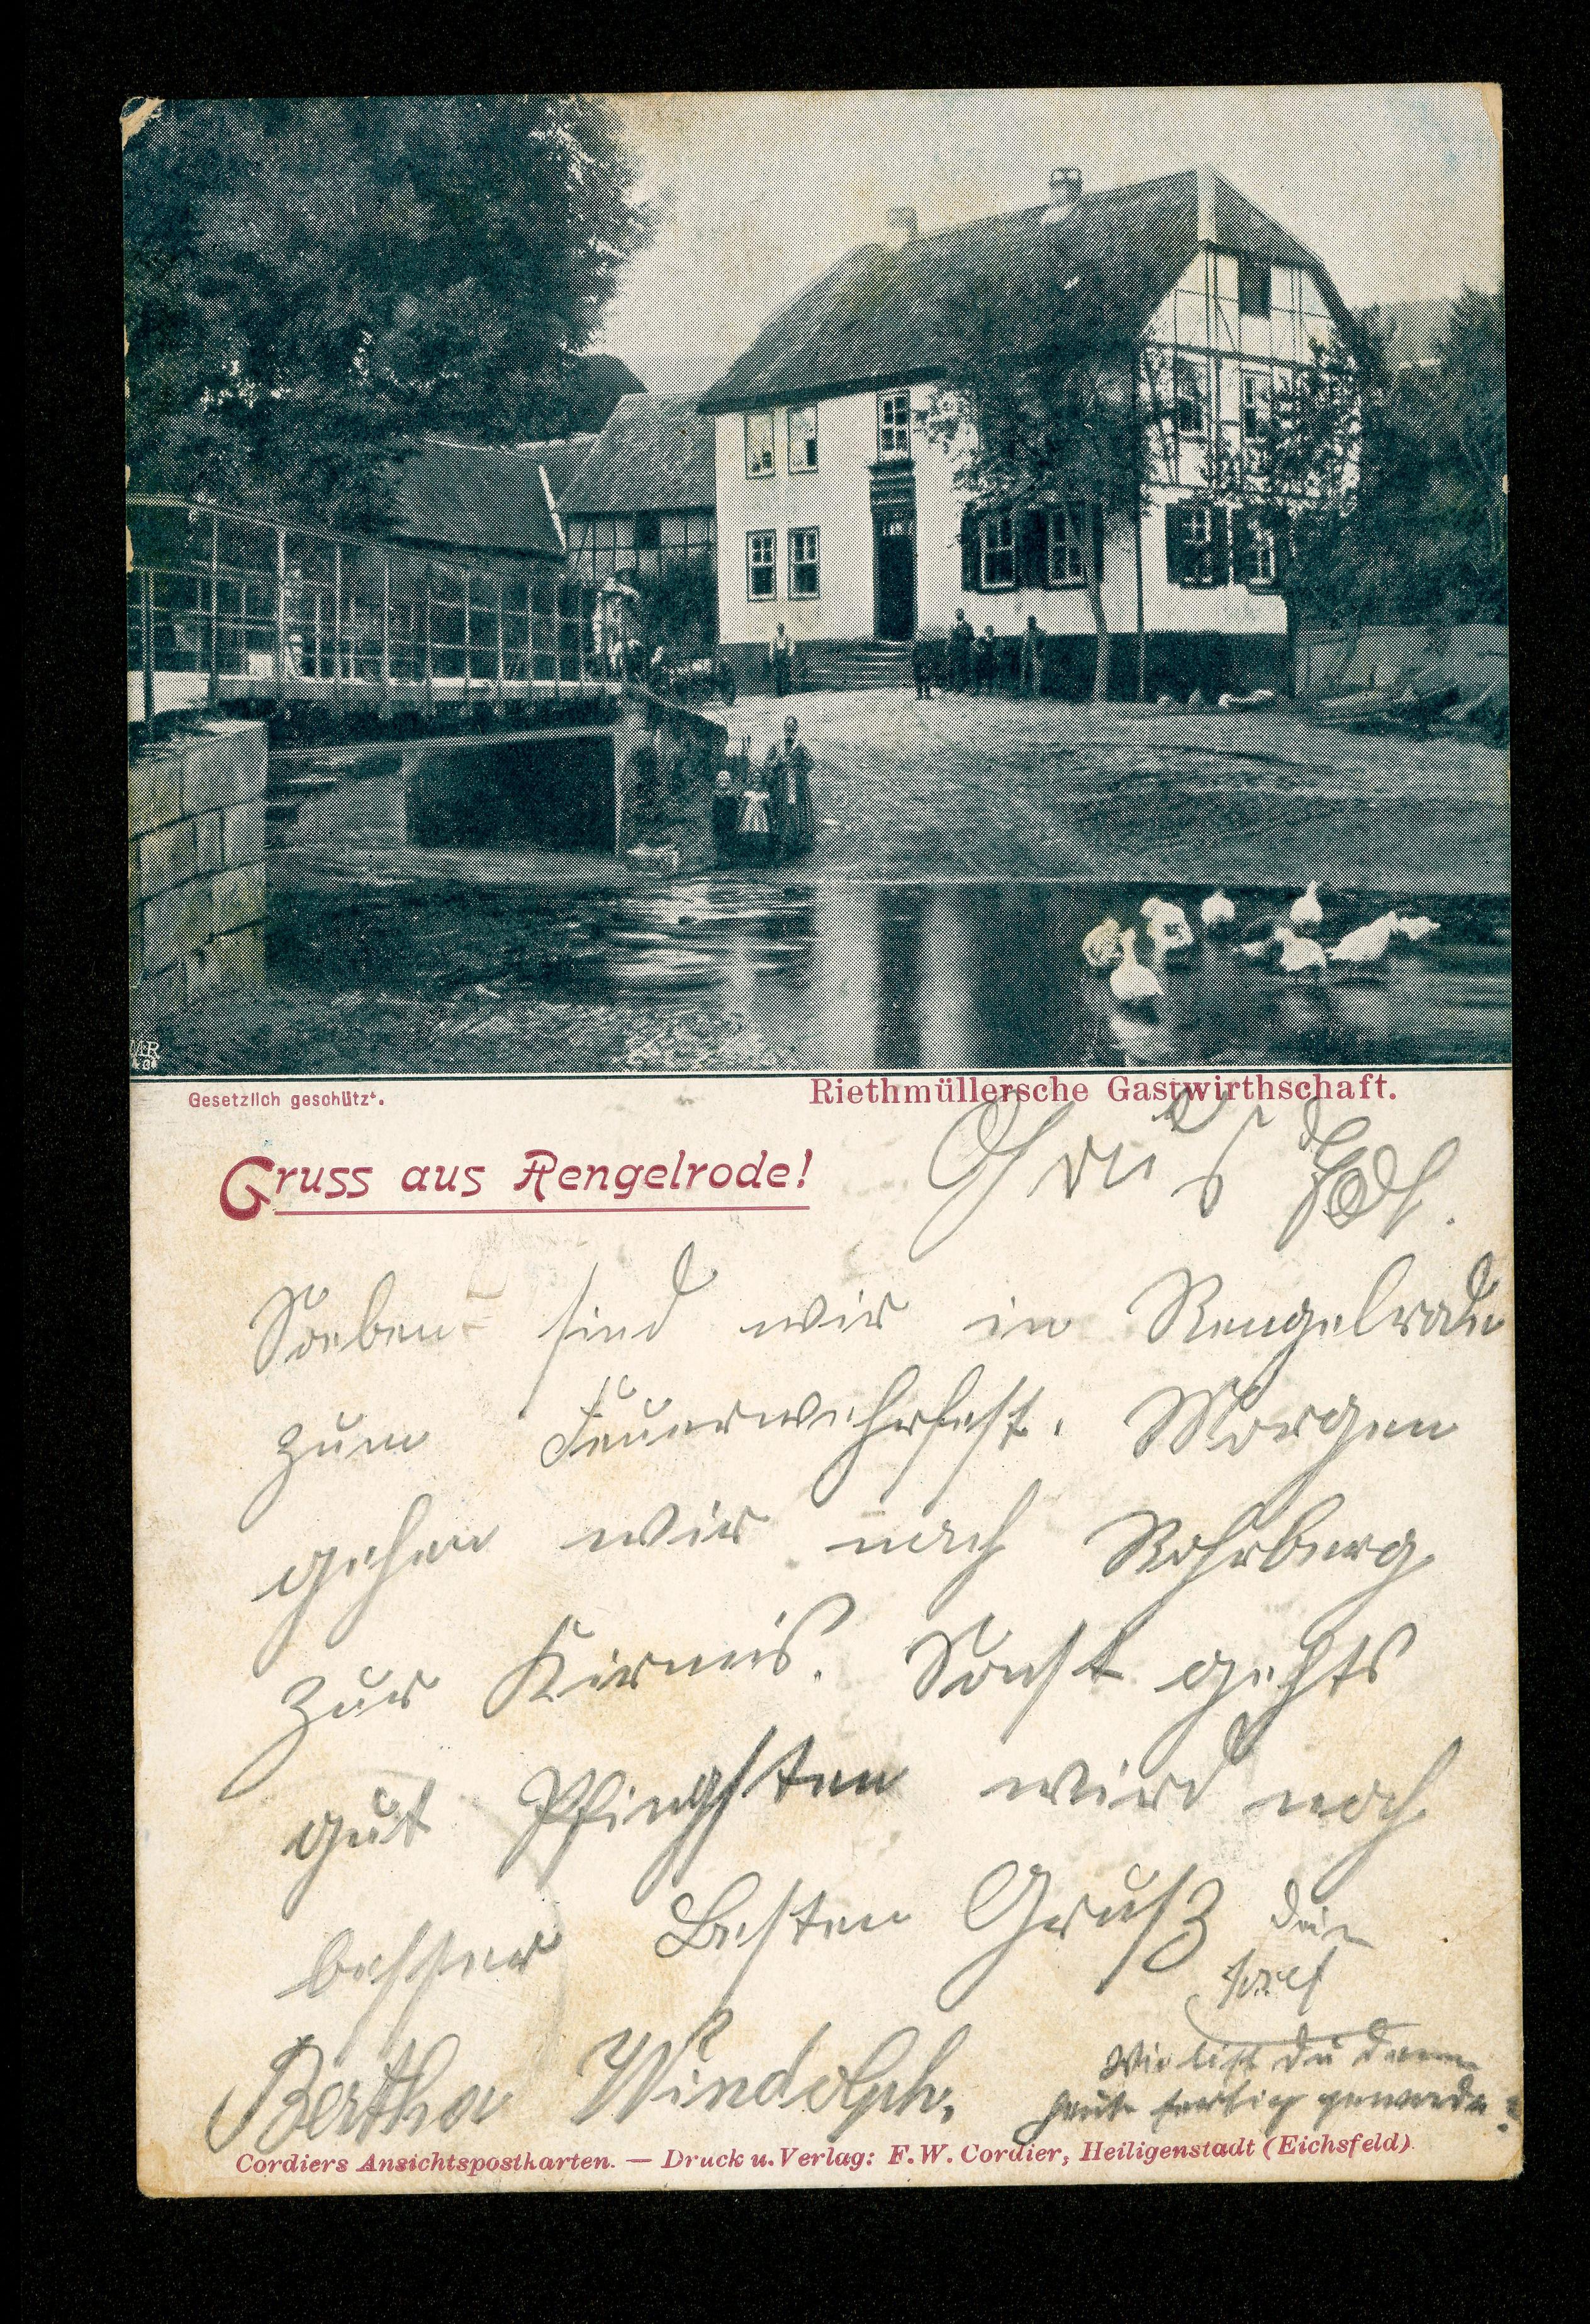 Gesetzlich geschützt.
Riethmüllersche Gastwirthschaft.
Gruss aus Rengelrode!
Gruß
Soeben sind wir in Rengelrode
zum Feuerwehrfest. Morgen
gehen wir nach Rohrberg
zur Kirmis. Sonst gehts
gut Pfingsten wird noch
besser Besten Gruß dein
Josef
Bertha Windolph.
Wie bist du denn
heute fertig geworden?
Cordiers Ansichtspostkarten. — Druck u. Verlag: F. W. Cordier, Heiligenstadt (Eichsfeld).